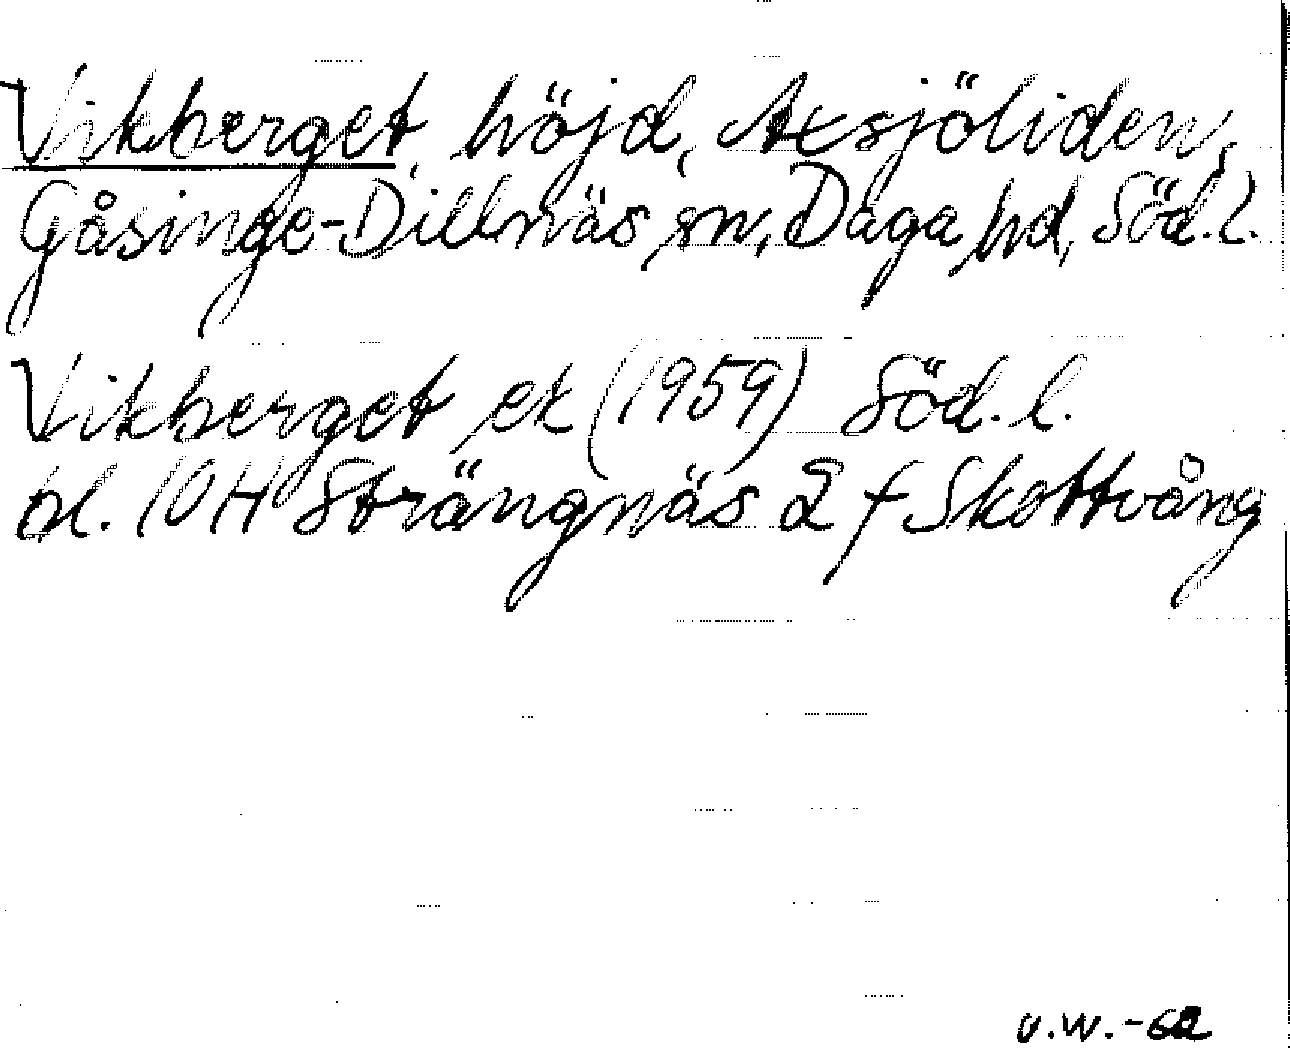 Vikberget, höjd, Axsjöliden,
Gåsinge-Dillnäs sn, Daga hd, Söd.l.
Vikberget ek (1959) Söd.l.
bl. 10H Strängnäs 2 f Skottvång
U.W.-62